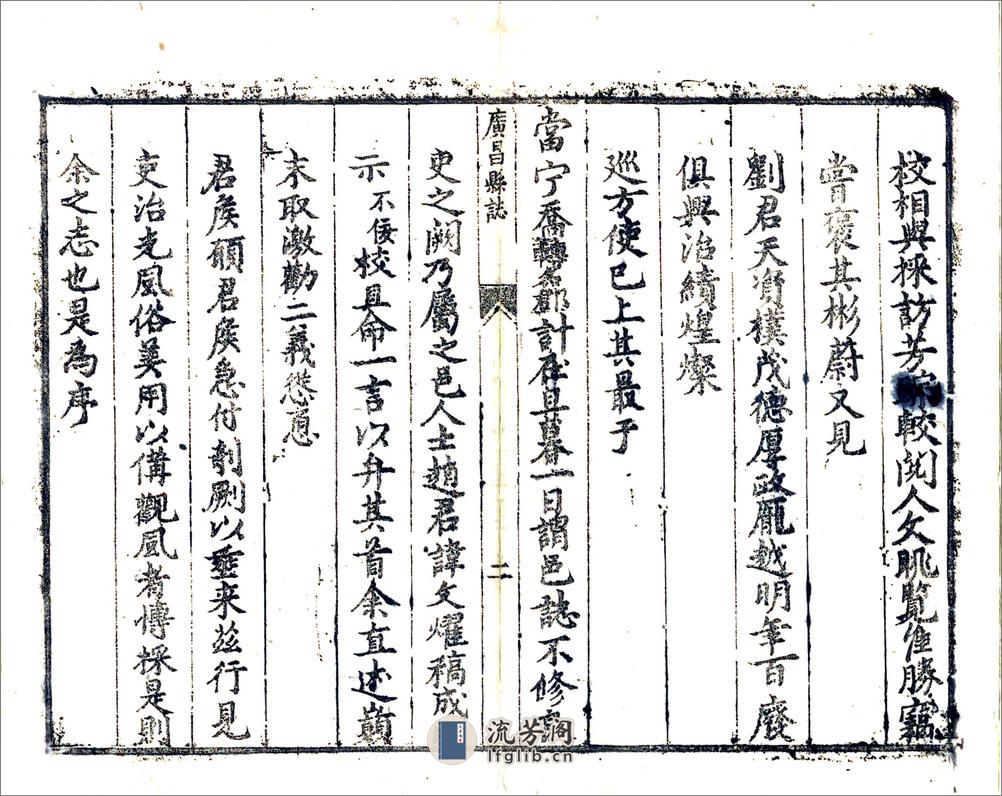 校相與採訪芳 較閱人文眺覽佳勝竊
嘗褒其彬蔚又見
劉君天資樸茂德厚政龐越明年百廢
俱興治績煌燦
巡方使已上其最于
當宁喬轉名郡計在旦暮一日謂邑誌不修
廣昌縣誌
二
吏之闕乃屬之邑人士趙君諱文燿稿成
示不佞校且命一言以弁其首余直述巔
末取激勸二義慫恿
君侯願君侯急付剞劂以垂来茲行見
吏治光風俗美用以俻觀風者慱採是則
余之志也是為序
流芳阁
lfglib.cn